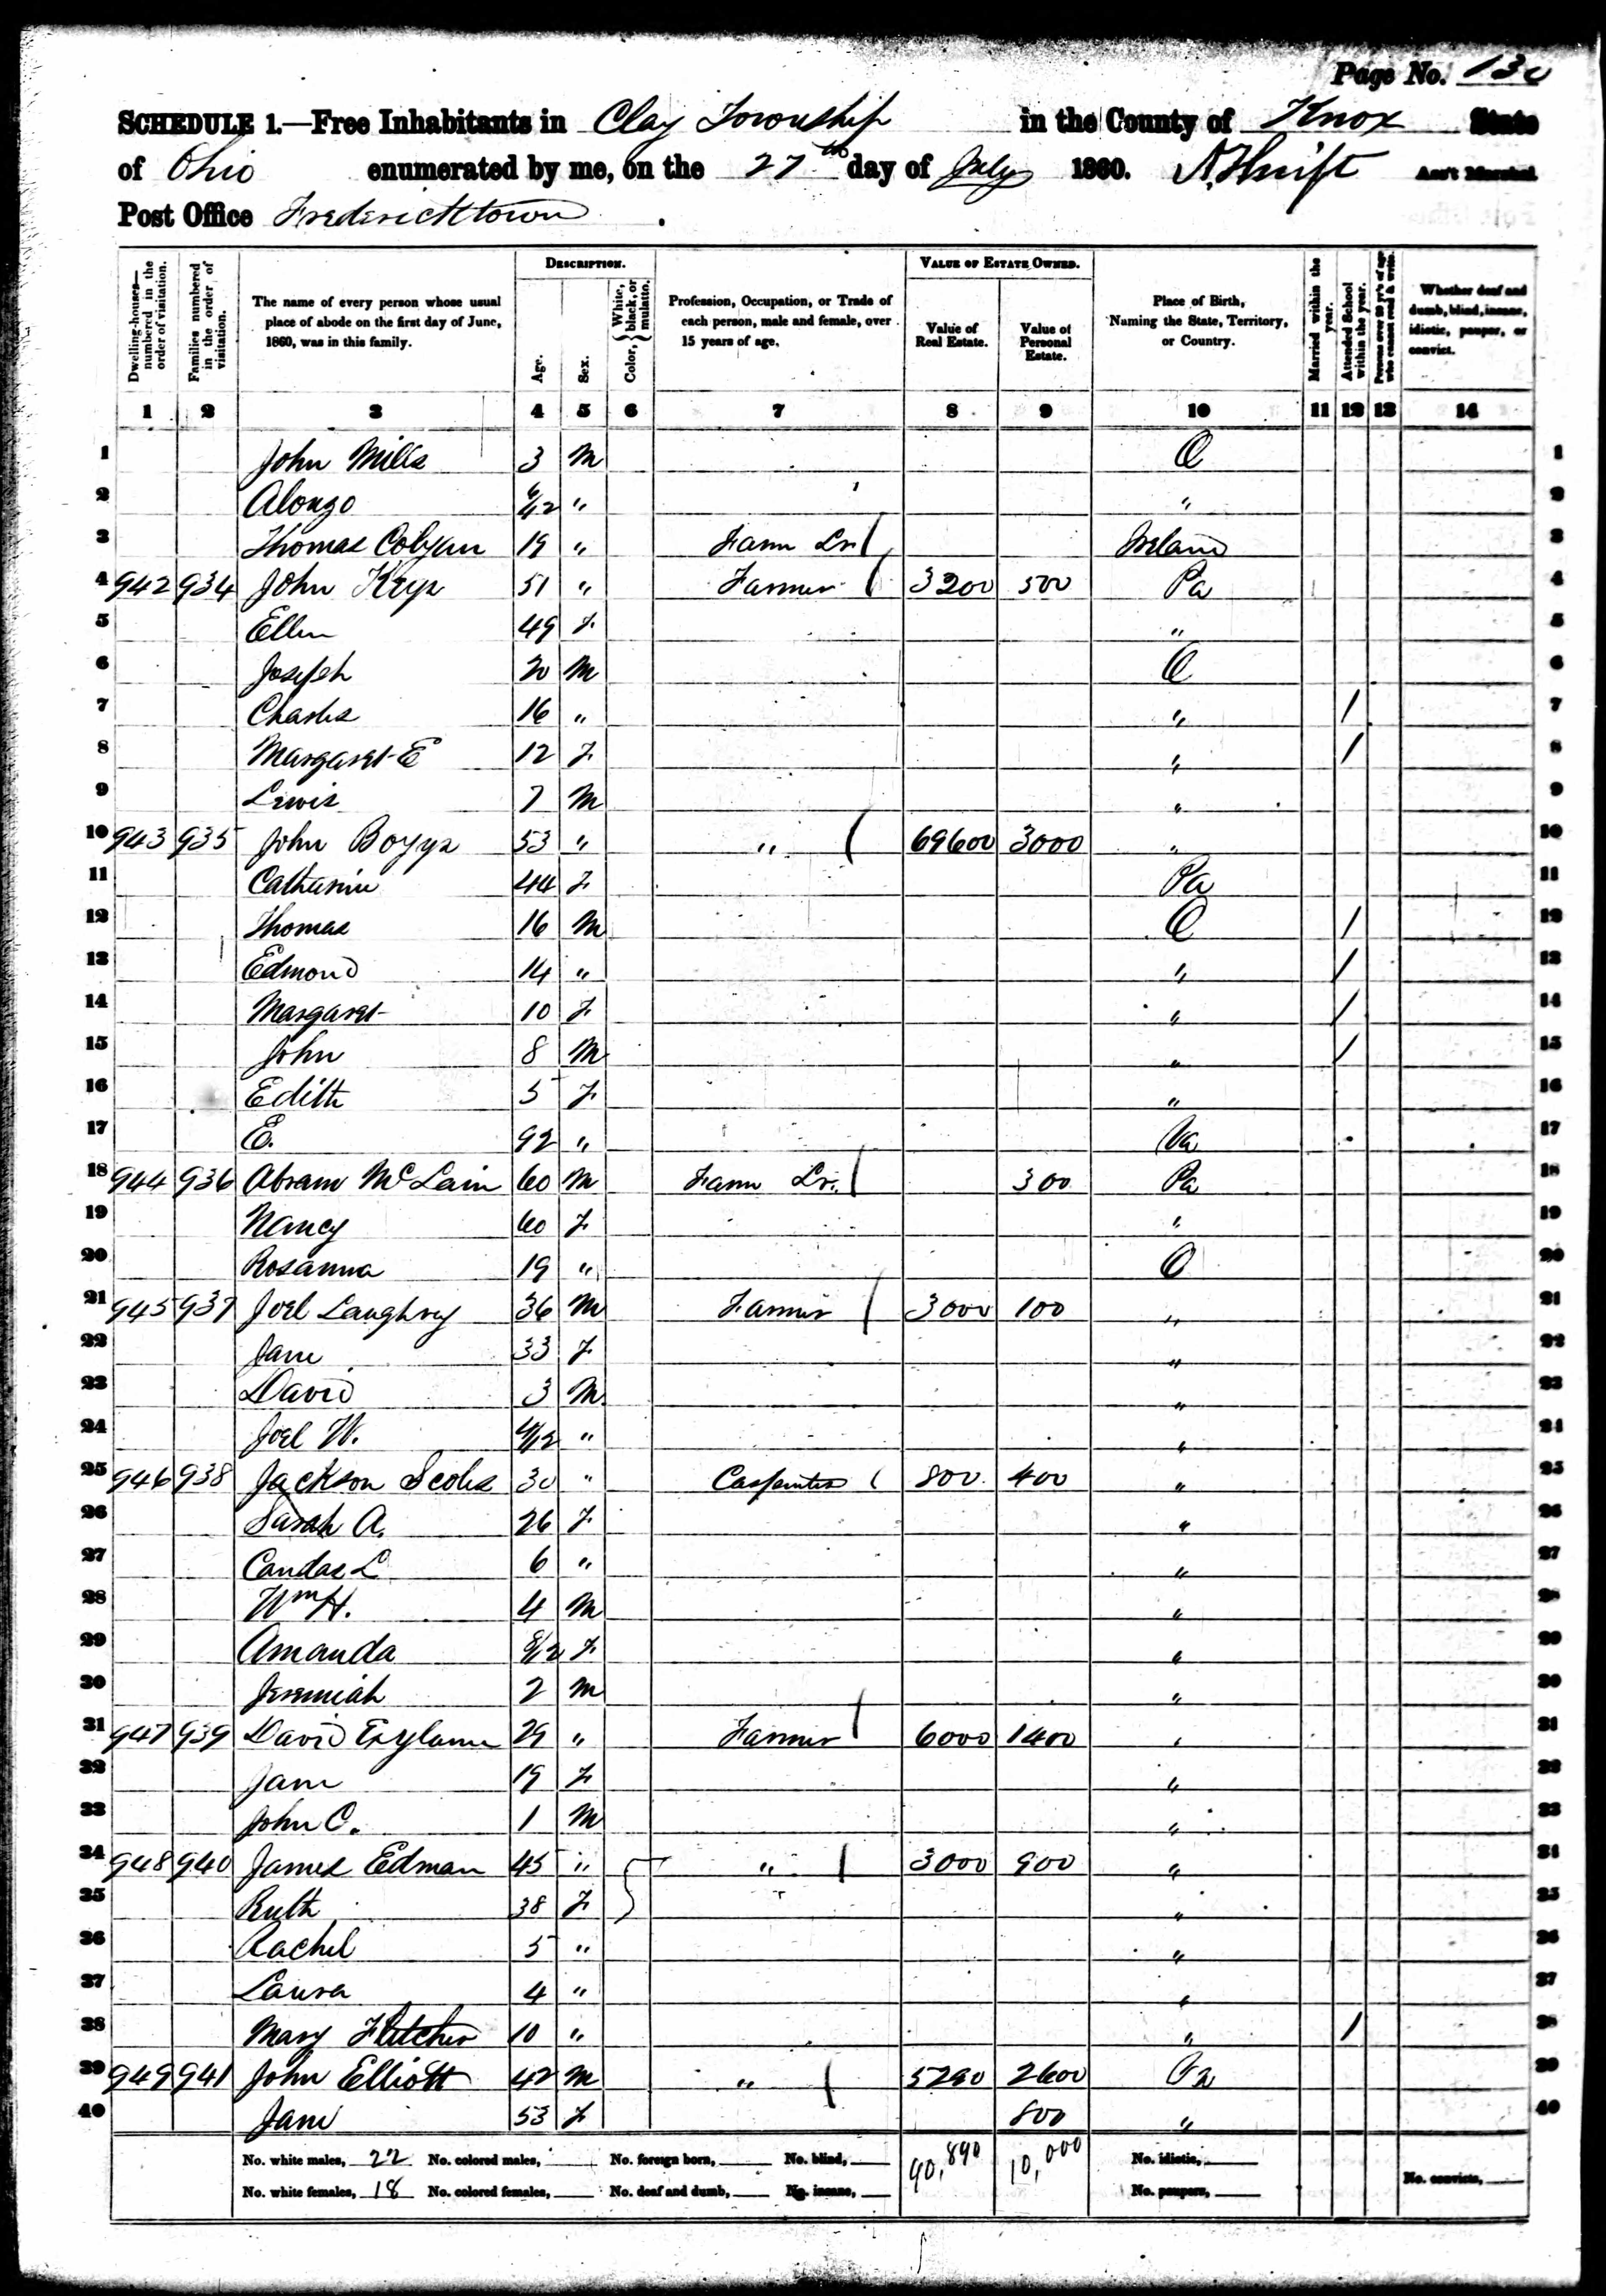 Page No. 130
SCHEDULE 1.—Free Inhabitants in Clay Township in the County of Knox State
of Ohio enumerated by me, on the 27th day of July 1860. Ass't Marshal.
Post Office Fredericktown
Dwelling-houses—numbered in the order of visitation. Families numbered in the order of visitation. The name of every person whose usual place of abode on the first day of June, 1860, was in this family. DESCRIPTION. Age. Sex. Color, {White, black, or mulatto. Profession, Occupation, or Trade of each person, male and female, over 15 years of age. VALUE OF ESTATE OWNED. Value of Real Estate. Value of Personal Estate. Place of Birth, Naming the State, Territory, or Country. Married within the year. Attended School within the year. Persons over 20 y'rs of age who cannot read & write. Whether deaf and dumb, blind, insane, idiotic, pauper, or convict.
1 2 3 4 5 6 7 8 9 10 11 12 13 14
1 John Mills 3 M O 1
2 Alonzo /12 " " 2
3 Thomas 19 " Farm Lr. Ireland 3
4 942 934 John Keys 51 " Farmer 3200 500 Pa 4
5 Ellen 49 F " 5
6 Joseph 20 M O 6
7 Charles 16 " " / 7
8 Margaret E 12 F " / 8
9 Lewis 7 M " 9
10 943 935 John Boggs 53 " " 69600 3000 " 10
11 Catharine 44 F Pa 11
12 Thomas 16 M O / 12
13 Edmond 14 " " / 13
14 Margaret 10 F " / 14
15 John 8 M " / 15
16 Edith 5 F " 16
17 E. 92 " Va 17
18 944 936 Abram McLain 60 M Farm Lr. 300 Pa 18
19 Nancy 60 F " 19
20 Rosanna 19 " O 20
21 945 937 Joel Laughrey 36 M Farmer 3000 100 " 21
22 Jane 33 F " 22
23 David 3 M " 23
24 Joel W. /12 " " 24
25 946 938 Jackson Scoles 30 " Carpenter 800 400 " 25
26 Sarah A. 26 F " 26
27 Candas L 6 " " 27
28 Wm H. 4 M " 28
29 Amanda 8/12 F " 29
30 Jeremiah 2 M " 30
31 947 939 David 29 " Farmer 6000 1400 " 31
32 Jane 19 F " 32
33 John C. 1 M " 33
34 948 940 James Edman 45 " " 3000 900 " 34
35 Ruth 38 F " 35
36 Rachel 5 " " 36
37 Laura 4 " " 37
38 Mary Fletcher 10 " " / 38
39 949 941 John Elliott 42 M " 5290 2600 Pa 39
40 Jane 53 F 800 " 40
No. white males, 22 No. colored males, No. foreign born, No. blind, 90,890 10,000 No. idiotic,
No. white females, 18 No. colored females, No. deaf and dumb, No. insane, No. paupers, No. convicts,